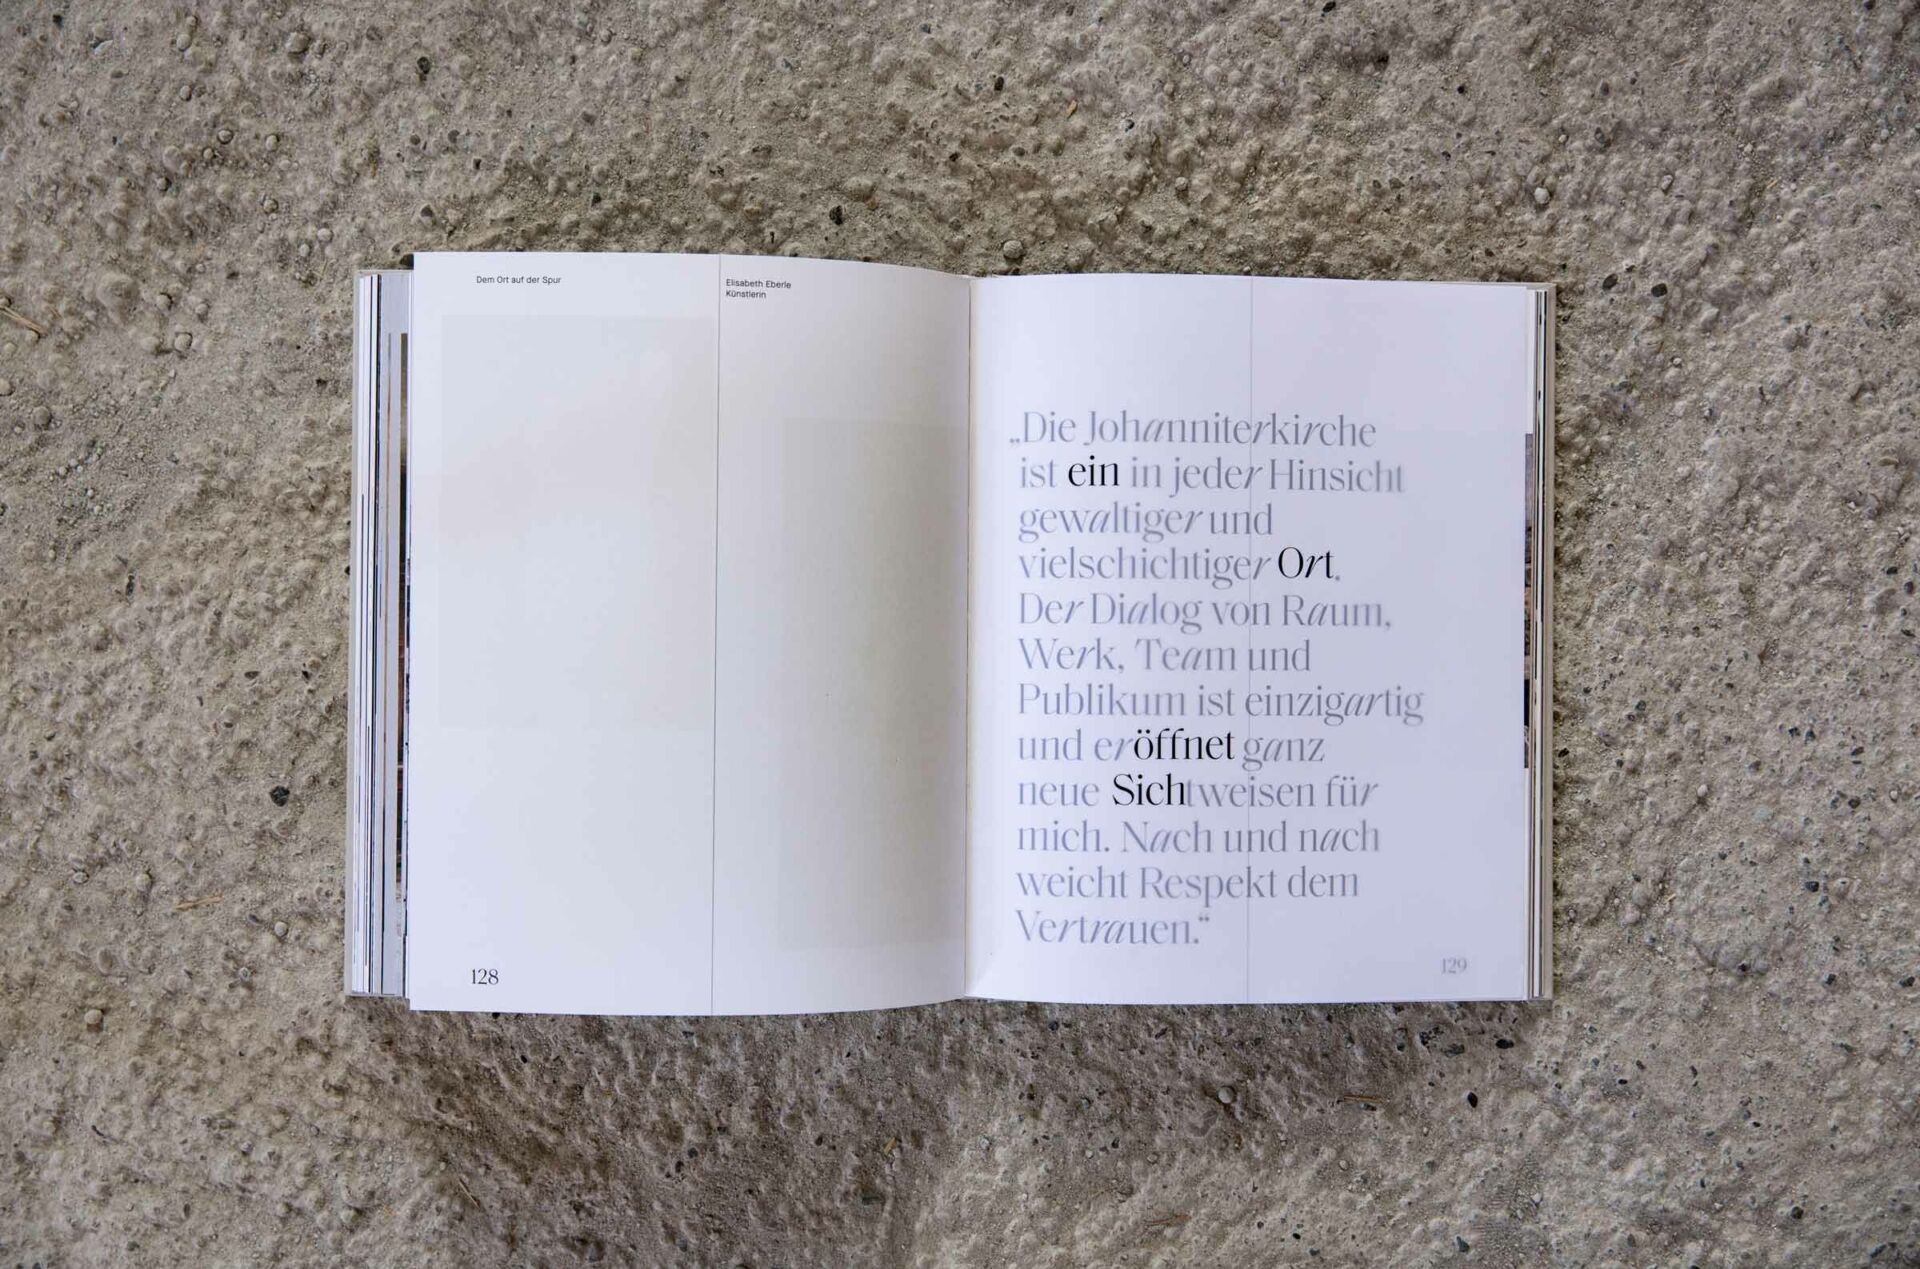 Dem Ort auf der Spur
Elisabeth Eberle
Künstlerin
128
„Die Johanniterkirche
ist ein in jeder Hinsicht
gewaltiger und
vielschichtiger Ort.
Der Dialog von Raum,
Werk, Team und
Publikum ist einzigartig
und eröffnet ganz
neue Sichtweisen für
mich. Nach und nach
weicht Respekt dem
Vertrauen.“
129